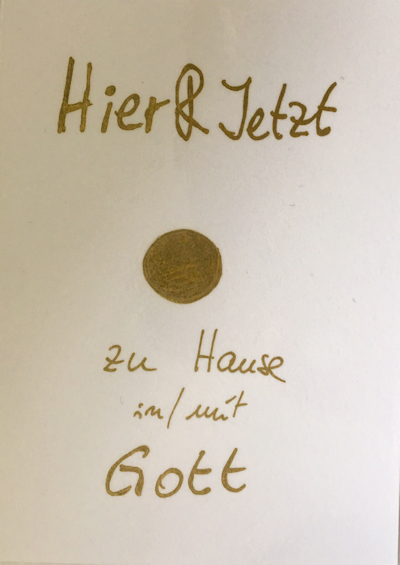 Hier & Jetzt
zu Hause
in/mit
Gott